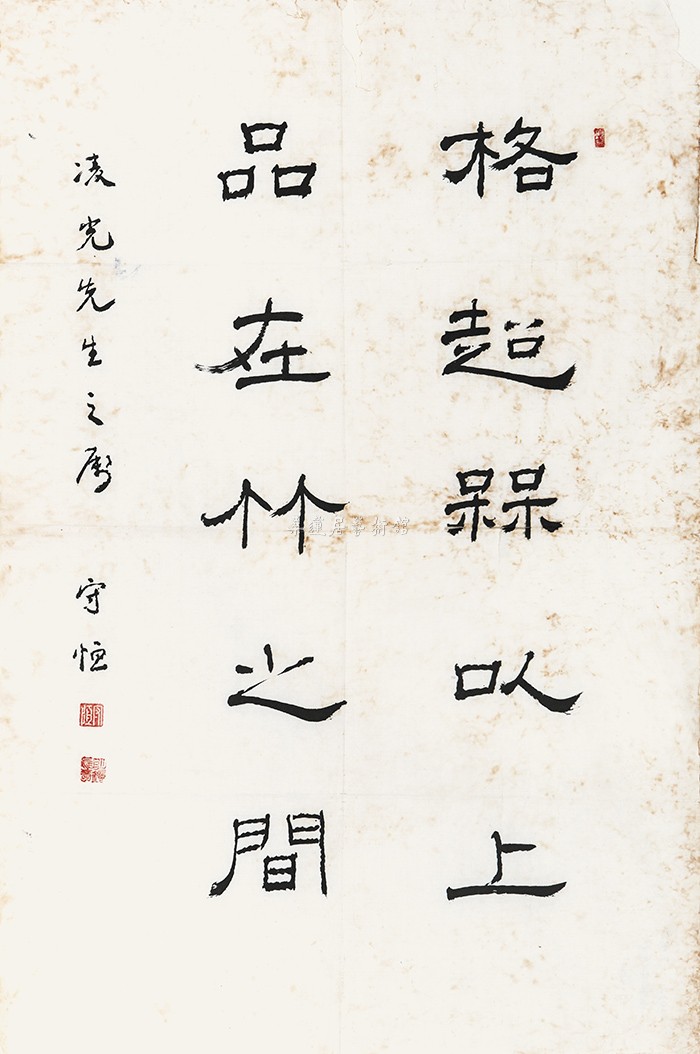 格超槑以上
品在竹之間
凌光先生之属
守恒